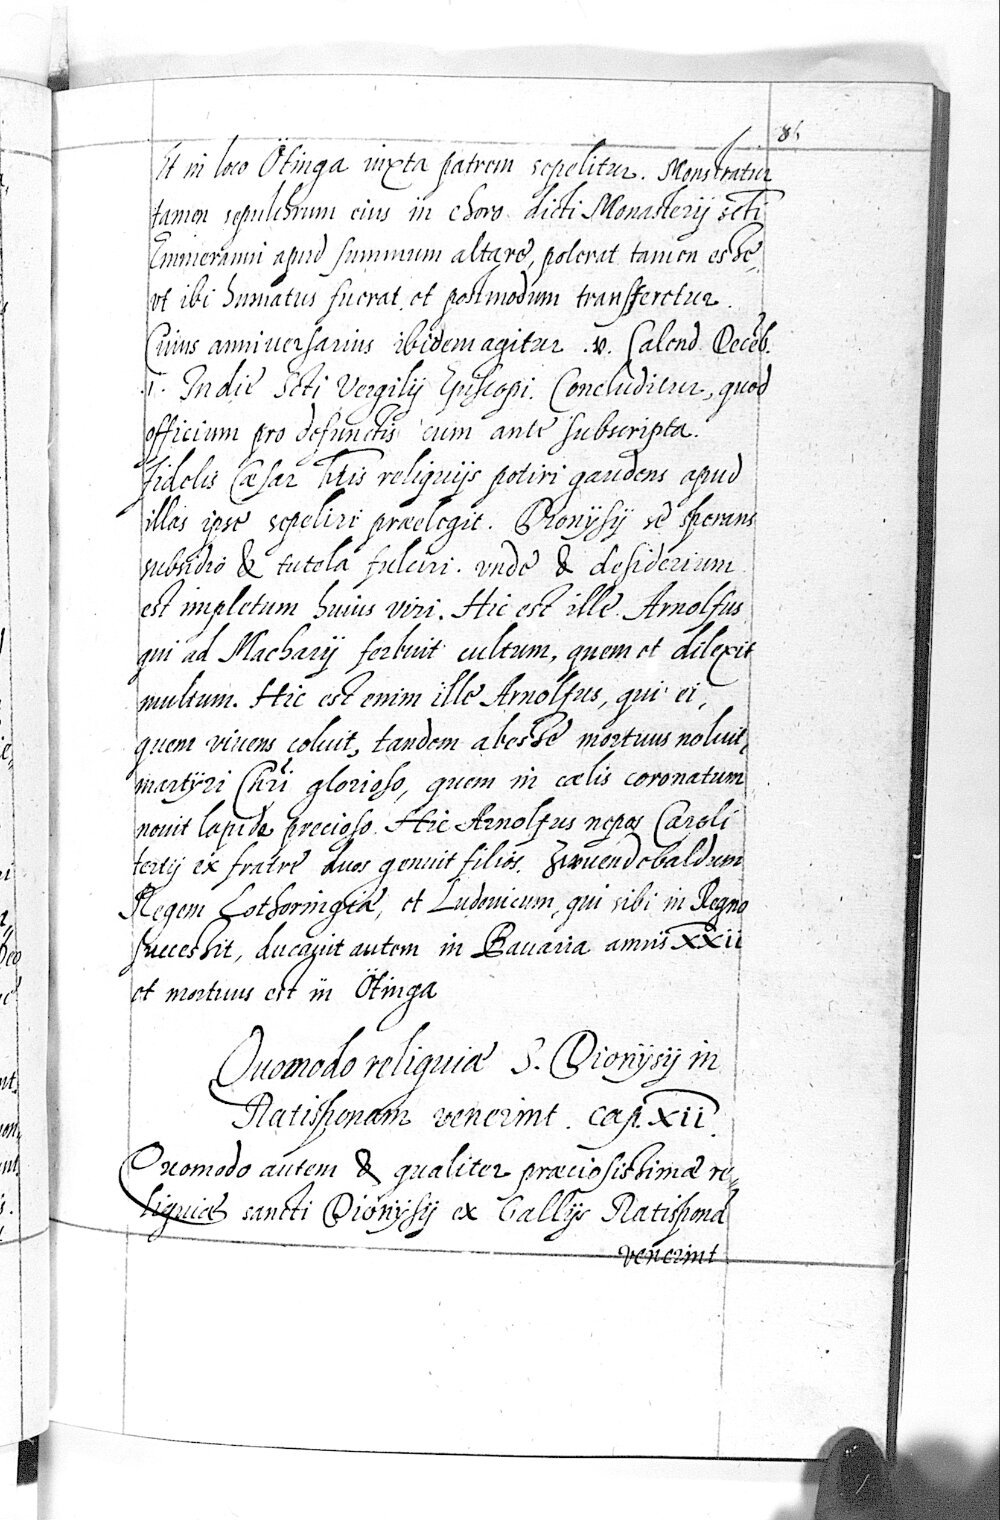 Et in loco Ötinga iuxta patrem sepelitur. Monstratur
tamen sepulchrum eius in choro dicti Monasterij scti
Emmerammi apud summum altare, poterat tamen esse,
vt ibi humatus fuerat et postmodum transferetur.
Cuius anniuersarius ibidem agitur .v. Calend Deceb.
.i. In die Scti Vergilij Episcopi. Concluditur, quod
officium pro defunctis cum ante subscripta.
Fidelis Cæsar reliquijs potiri gaudens apud
illas ipse sepeliri præelegit. Dionÿsij se sperans
subsidio & tutela fulciri. vnde & desiderium
est impletum huius viri. Hic est ille Arnolfus
qui ad Macharij ferbuit cultum, quem et dilexit
multum. Hic est enim ille Arnolfus, qui ei,
quem viuens coluit, tandem abesse mortuus noluit,
martÿri Chri glorioso, quem in cælis coronatum
nouit lapide precioso. Hic Arnolfus nepos Caroli
tertij ex fratre duos genuit filios. Zwuendebaldum
Regem Lothoringiæ, et Ludouicum, qui sibi in Regno
successit, ducauit autem in Bauaria annis XXII
et mortuus est in Ötinga
Quomodo reliquiæ S. Dionÿsij in
Ratisponam venerint. Cap. XII.
Quomodo autem & qualiter præciosissimæ re=
liquiæ sancti Dionÿsij ex Gallijs Ratisponā
venerint